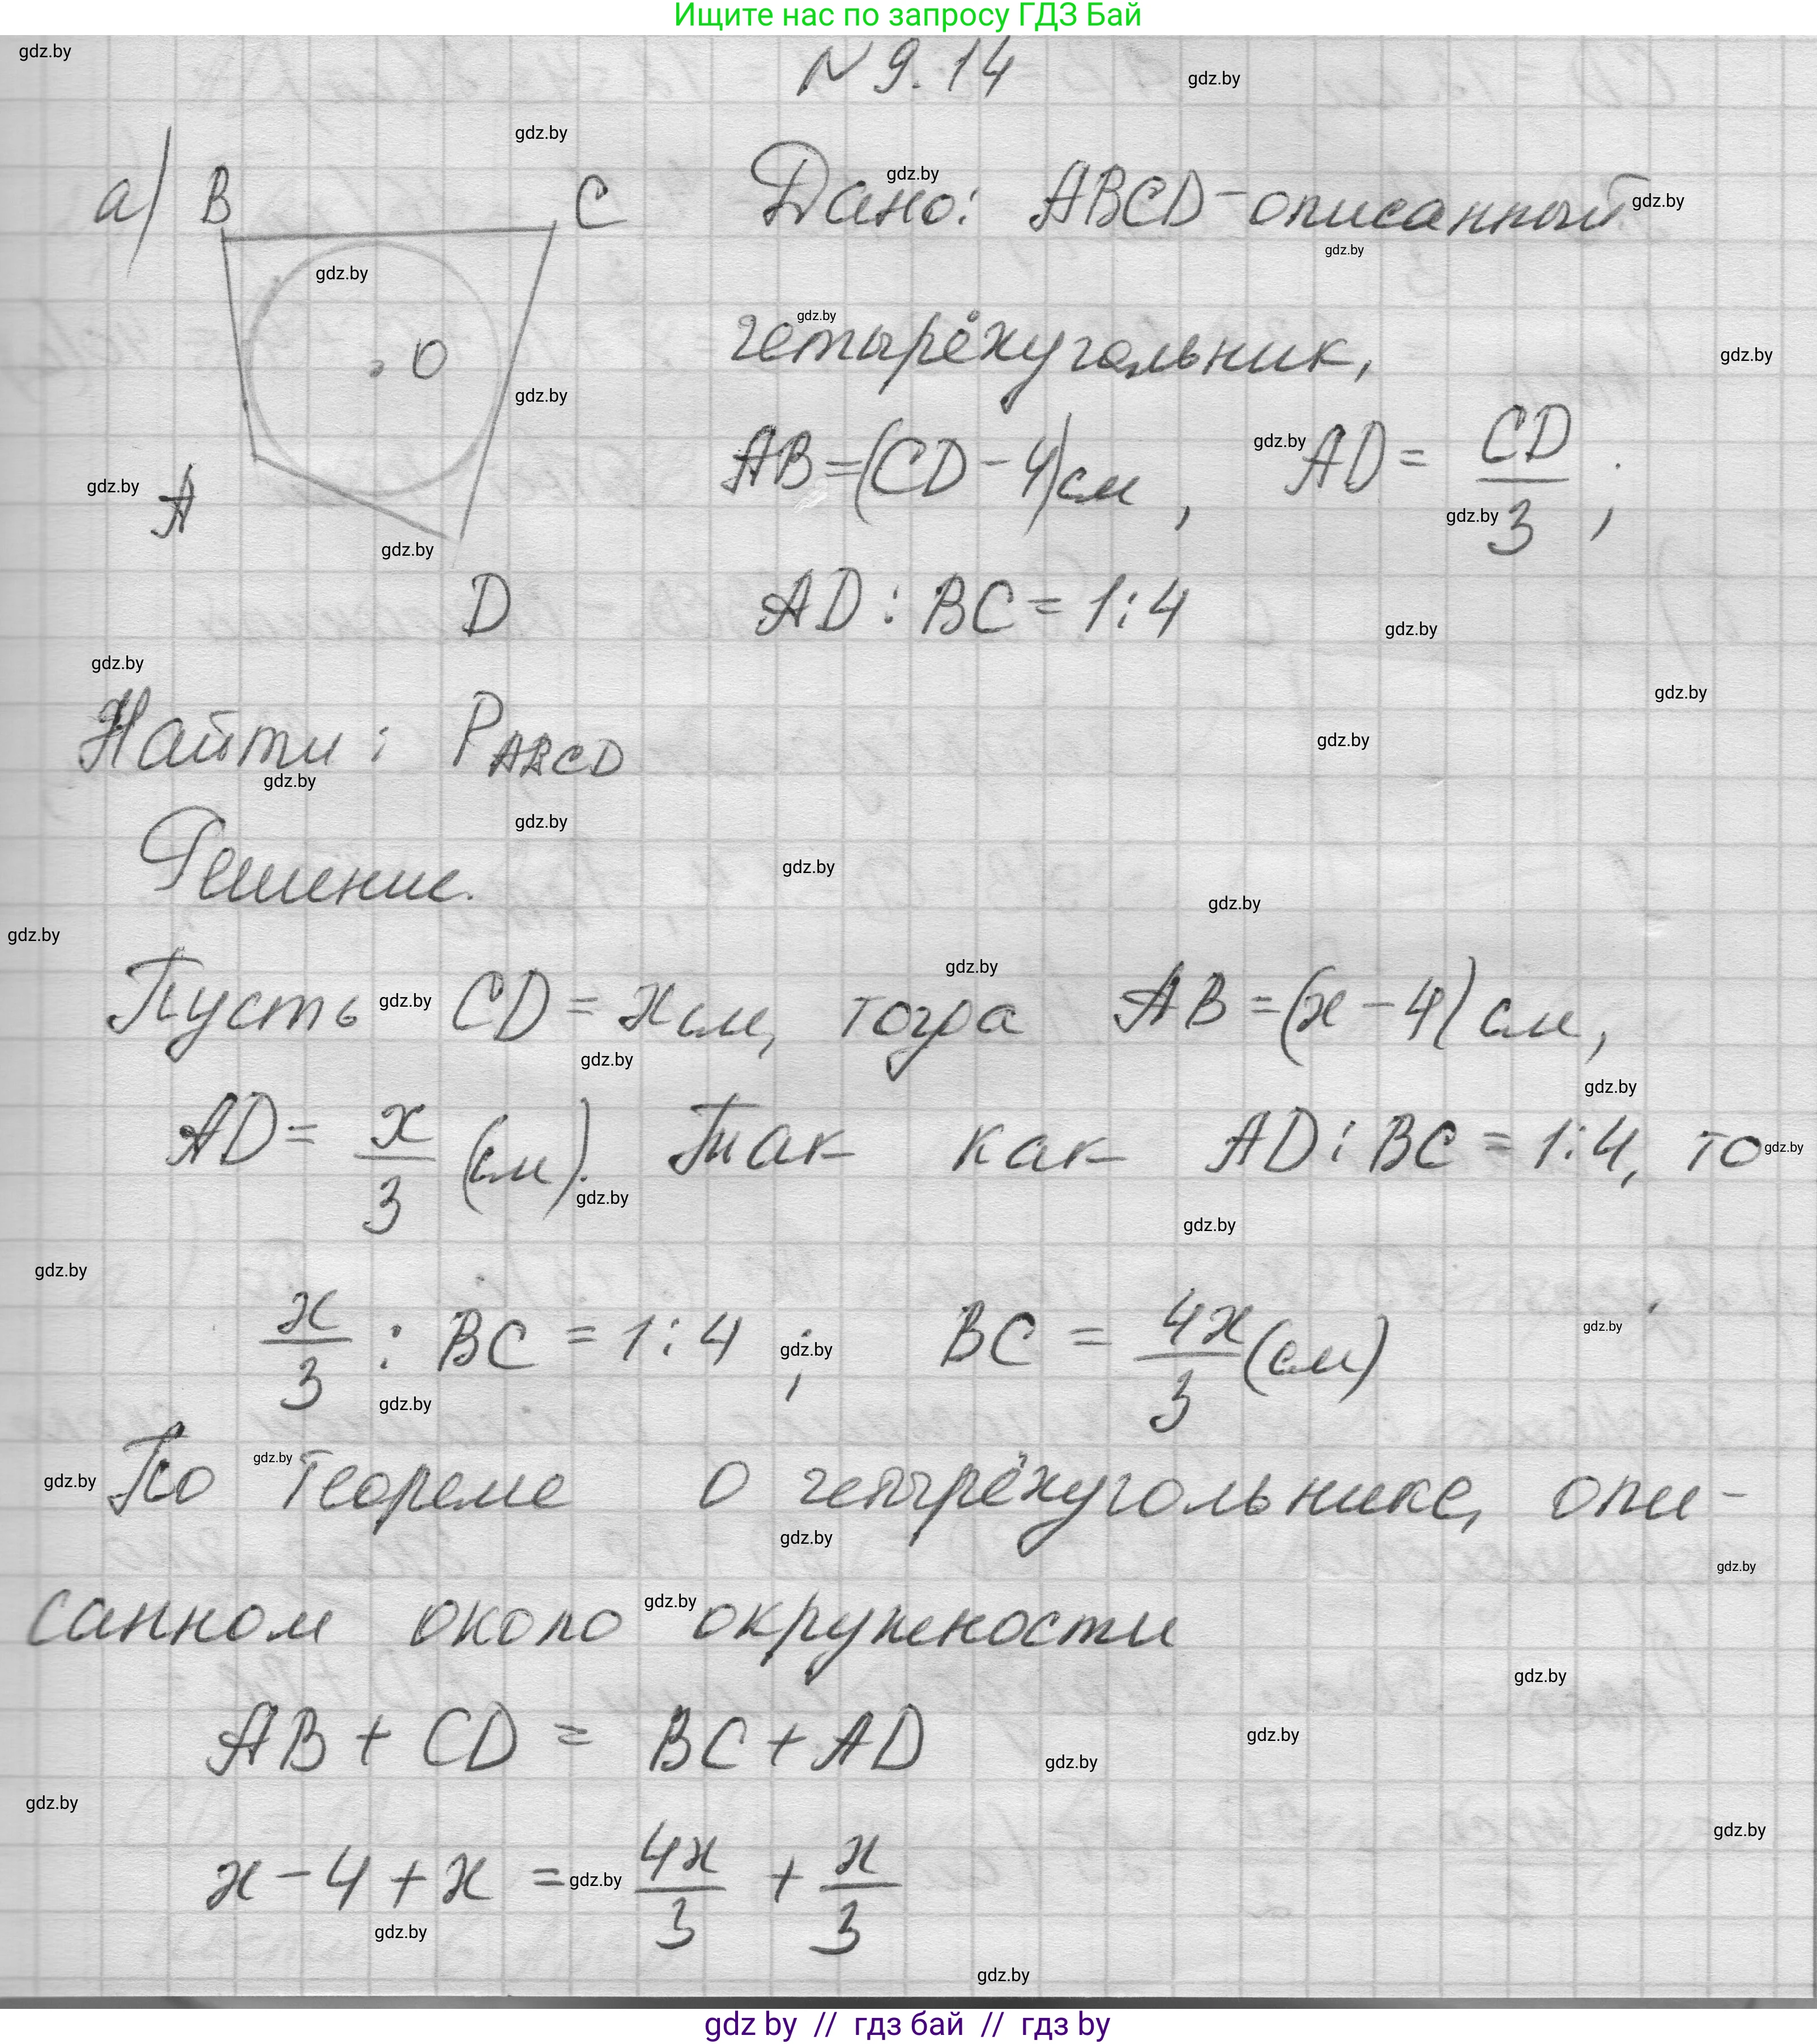 Ищите нас по запросу ГДЗ Бай
N 9.14
а) B C Дано: ABCD - описанный
O четырёхугольник,
A AB=(CD-4)см, AD= CD/3;
D AD:BC=1:4
Найти: P ABCD
Решение.
Пусть CD=x см, тогда AB=(x-4) см,
AD= x/3 (см). Так как AD:BC=1:4, то
x/3 : BC=1:4; BC = 4x/3 (см)
По теореме о четырёхугольнике, опи-
санном около окружности
AB+CD = BC+AD
x-4+x = 4x/3 + x/3
gdz by // гдз бай // гдз by